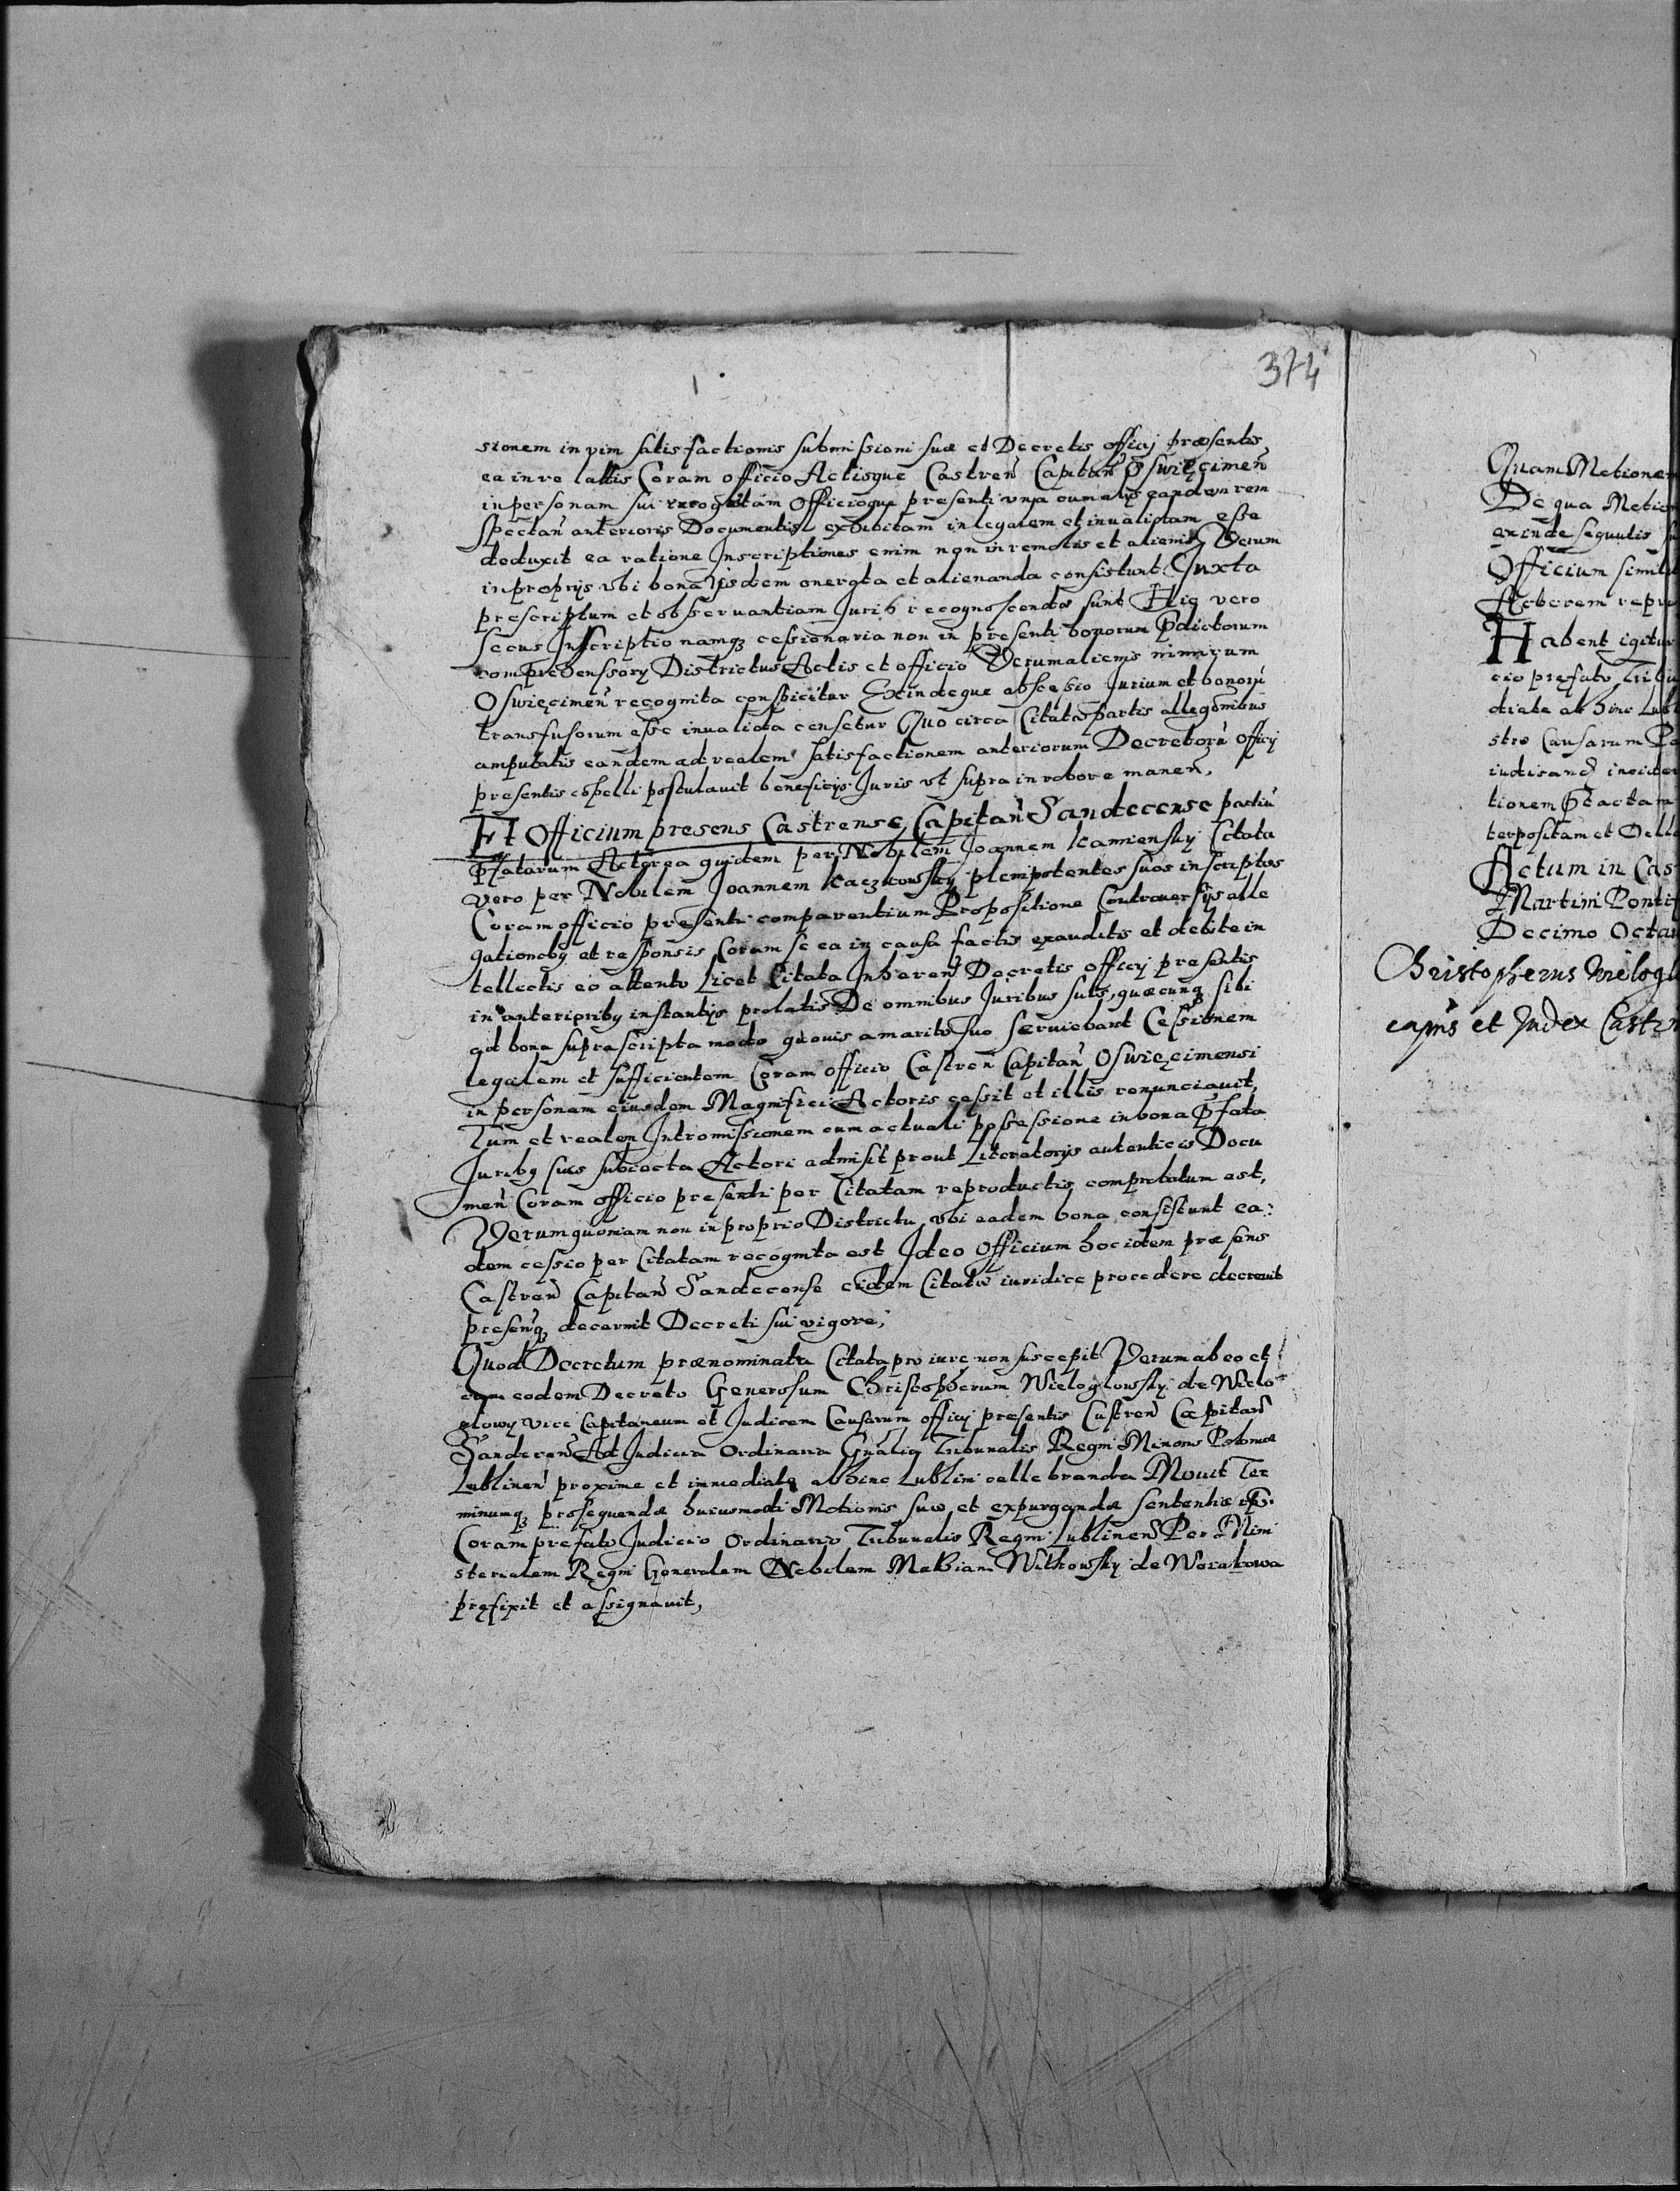 374
sionem in vim satisfactionis submissioni suæ et Decretis officij præsentis
ea in re lattis Coram officio Actisque Castren̄ Capitan̄ Oswięcimen̄
in personam sui recognitam Officioque presenti vna cum alijs eandem rem
Spectan̄ anterioris Documentis exhibitam inlegalem et inualidam esse
deduxit ea ratione Inscriptiones enim non in remotis et alienis Verum
in proprijs vbi bona ijsdem onerata et alienanda consistunt Juxta
prescriptum et obseruantiam Juris recognoscendæ sunt Hic vero
secus Inscriptio namq; cessionaria non in presenti bonorum p̄dictorum
comprehenssory Districtus Actis et officio Verum alienis nimirum
Oswięcimen̄ recognita conspicitur Exindeque abscessio Jurium et bonorū
transfusorum esse inualida censetur Quo circa Citatæ partis allegōnibus
amputatis eandem ad realem satisfactionem anteriorum Decretorū officij
presentis cōpelli postulauit beneficijs Juris vt supra in robore manen̄,
Et Officium presens Castrense, Capitan̄ Sandecense partiū
p̄fatarum Actorea quidem per Nobilem Joannem Kamiensky Citata
vero per Nobilem Joannem Kaczkowsky plenipotentes suos inscriptos
Coram officio presenti comparentium Propositione Controuersijs alle
gationeb9 et responsis Coram se ea in causa factis exauditis et debite in
tellectis eo attento Licet Citata Inheren̄ Decretis officij presentis
in anteriorib9 instantijs prolatis De omnibus Juribus suis, quæcunq; sibi
ad bona suprascripta modo quouis a marito suo seruiebant Cessionem
legalem et sufficientem Coram officio Castren̄ Capitan̄ Oswięcimensi
in personam eiusdem Magnifici Actoris cessit et illis renunciauit,
Tum et realem Intromissionem cum actuali possessione in bona p̄fata
Jurib9 suis subiecta Actori admisit prout Literatorijs autenticis Docu
men̄ Coram officio presenti per Citatam reproductis comprobatum est,
Verum quoniam non in proprio Districtu vbi eadem bona consistunt ea:
dem cessio per Citatam recognita est Ideo Officium hoc idem præsens
Castren̄ Capitan̄ Sandecense eidem Citatæ iuridice procedere decreuit
presen̄q; decernit Decreti sui vigore;
Quod Decretum prænominata Citata pro iure non suscepit Verum ab eo et
cum eodem Decreto Generosum Christopherum Wieloglowsky de Wielo-
glowy Vice Capitaneum et Judicem Causarum officij presentis Castren̄ Capitan̄
Sandecen̄ Ad Judicia Ordinaria Gn̄alia Tribunalis Regni Minoris Poloniæ
Lublinen̄ proxime et immediate abhinc Lublini cellebranda Mouit Ter
minumq; prosequendæ huiusmodi Motionis suæ et expurgandæ sententiæ
Coram prefato Judicio Ordinario Tribunalis Regni Lublinen̄ Per Mini
sterialem Regni Generalem Nobilem Mathiam Witkowsky de Worakowa
pręfixit et assignauit,
Quam Motionem
De qua Motion
exinde sequutis
Officium simil
Actorem repr
Habent igitur
cio pręfato Tribu
diate ab hinc Lubl
stro Causarum
iudicand inciden
tionem p̄tactam
terpositam et Delle
Actum in Cas
Martini Pontif
Decimo Octau
Christopherus Wielogl
capn̄s et Judex Castr